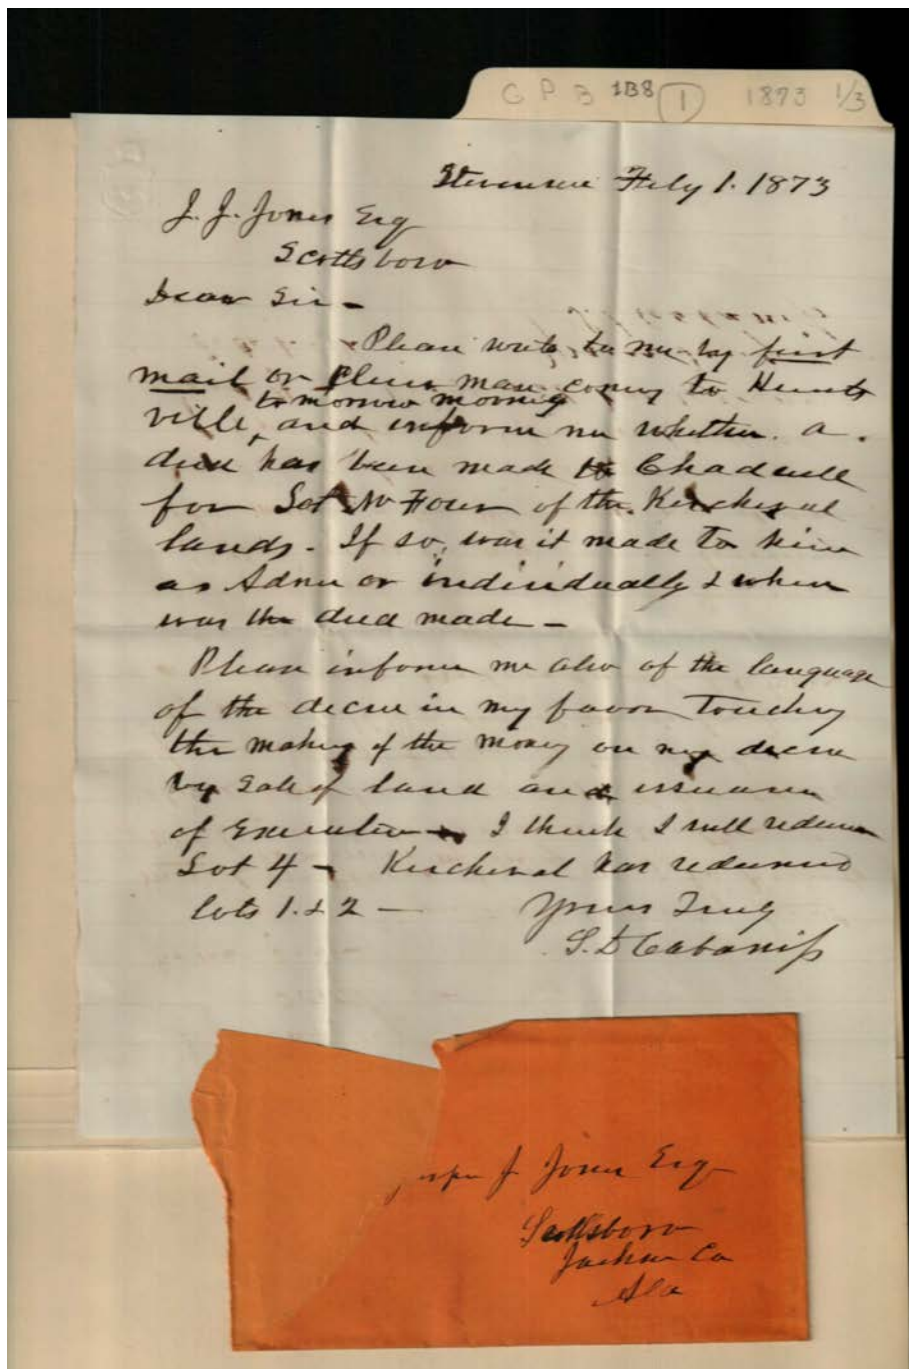 G P B 1B8 1 1873 1/3
Stevenson Feby 1. 1873
J. J. Jones Esq
Scottsboro
Dear Sir -
Please write to me by first
mail or some man coming to Hunts
tomorrow morning
ville, and inform me whether a
deed has been made to Chadwell
for Lot No Four of the Kircheval
lands. If so, was it made to him
as Admr or individually & when
was the deed made -
Please inform me also of the language
of the decree in my favor touching
the making of the money on my decree
by sale of land and issuance
of Execution - I think I will redeem
Lot 4 - Kircheval has redeemed
lots 1. & 2 -
Yours Truly
S. D Cabaniss
J. Jones Esq
Scottsboro
Jackson Co
Ala